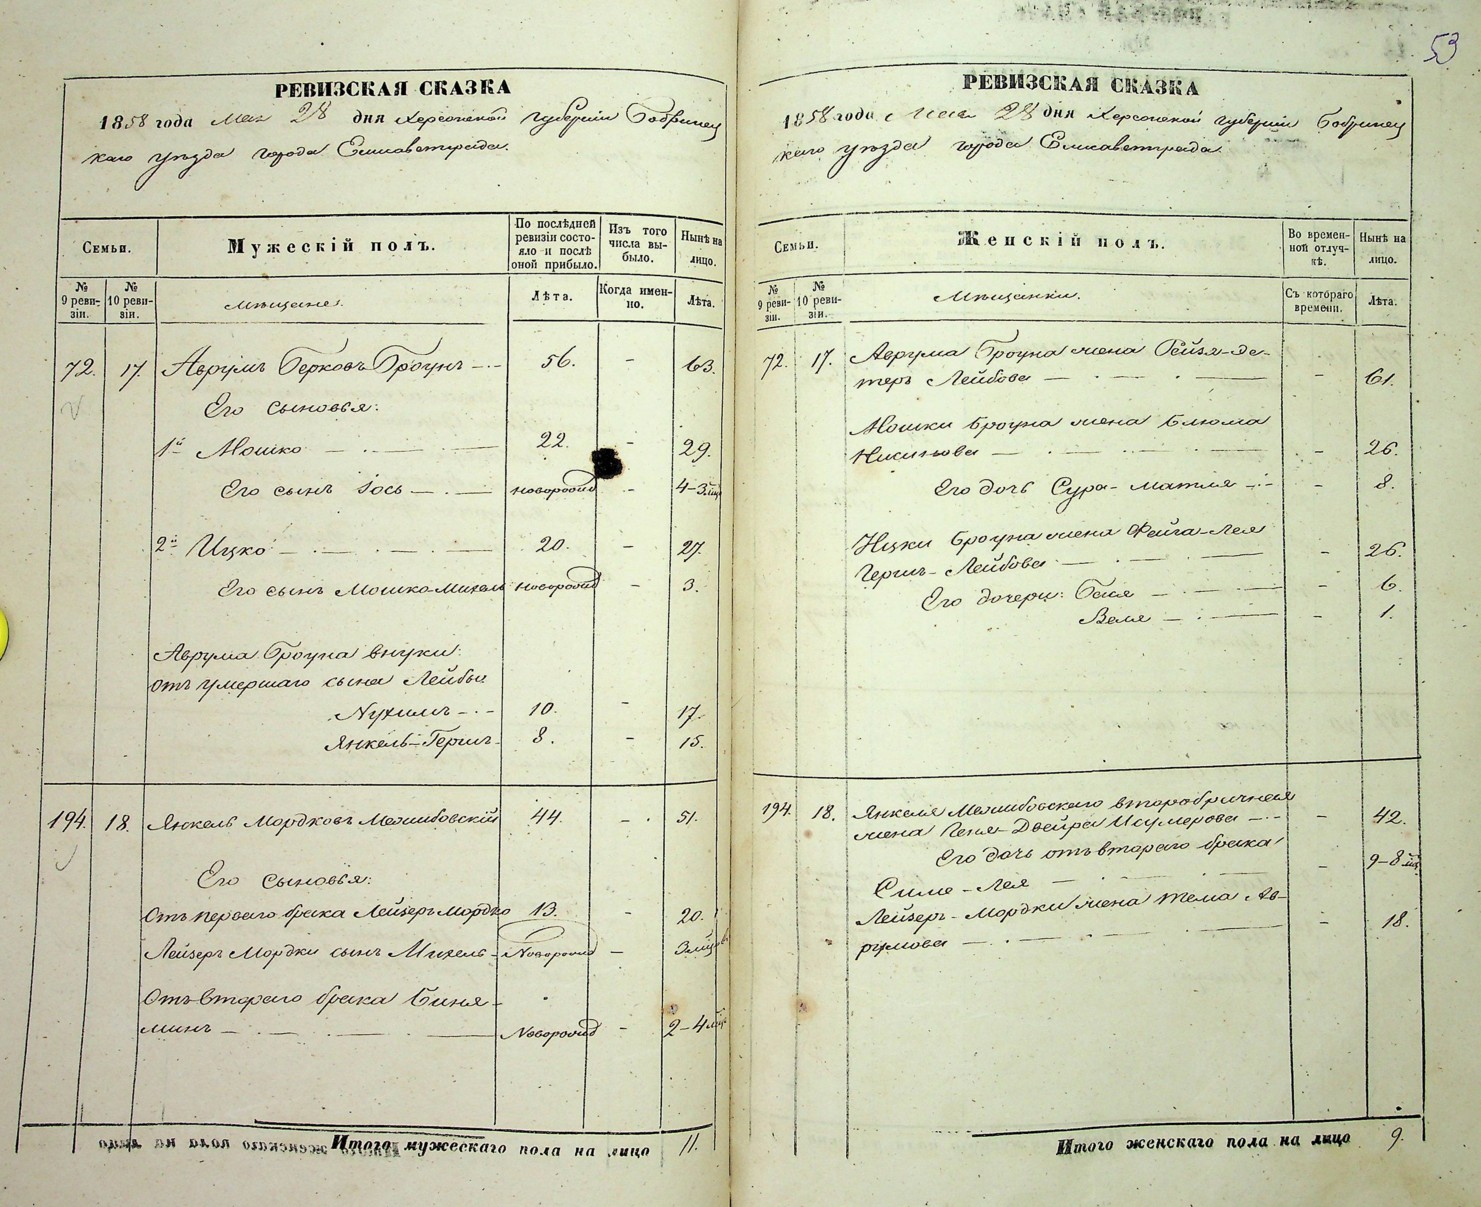 53
РЕВИЗСКАЯ СКАЗКА
1858 года Мая 28 дня Херсонской губернии Бобринец
каго уѣзда города Елисаветграда.
Семьи.
Мужескій полъ.
По послѣдней ревизіи состояло и послѣ оной прибыло.
Изъ того числа выбыло.
Нынѣ на лицо.
№ 9 ревизіи.
№ 10 ревизіи.
Мѣщане.
Лѣта.
Когда именно.
Лѣта.
72. 17. Аврумъ Берковъ Броунъ — 56. – 63.
Его сыновья:
1й Мошко — 22. – 29.
Его сынъ Іось — новорожд – 4–3 мѣс
2й Ицко — 20. – 27.
Его сынъ Мошко-Михель новорожд – 3.
Аврума Броуна внуки:
отъ умершаго сына Лейбы
Нухимъ — 10. – 17.
Янкель-Гершъ 8. – 15.
194. 18. Янкель Мордковъ Межибовскій 44. – 51.
Его сыновья:
Отъ перваго брака Лейзеръ Мордко 13. – 20.
Лейзеръ Мордки сынъ Михель – Новорожд – 3 мѣс
Отъ втораго брака Биня-
минъ — Новорожд – 2–4 мѣс
Итого мужескаго пола на лицо 11.
РЕВИЗСКАЯ СКАЗКА
1858 года Мая 28 дня Херсонской губерніи Бобринец
каго уѣзда города Елисаветграда.
Семьи.
Женскій полъ.
Во временной отлучкѣ.
Нынѣ на лицо.
№ 9 ревизіи.
№ 10 ревизіи.
Мѣщанки.
Съ котораго времени.
Лѣта.
72. 17. Аврума Броуна жена Рейзя-Де-
теръ Лейбова — – 61.
Мошки Броуна жена Блюма
— – 26.
Его дочь Сура-Матля — – 8.
Ицки Броуна жена Фейга-Лея
Гершъ-Лейбова — – 26.
Его дочери: Бася — – 6.
Веля — – 1.
194. 18. Янкеля Межибовскаго второбрачная
жена Геня-Двейра Исумерова — – 42.
Его дочь отъ втораго брака
Симе-Лея — – 9–8 мѣс
Лейзеръ-Мордки жена Тема Ав-
румова — – 18.
Итого женскаго пола на лицо 9.